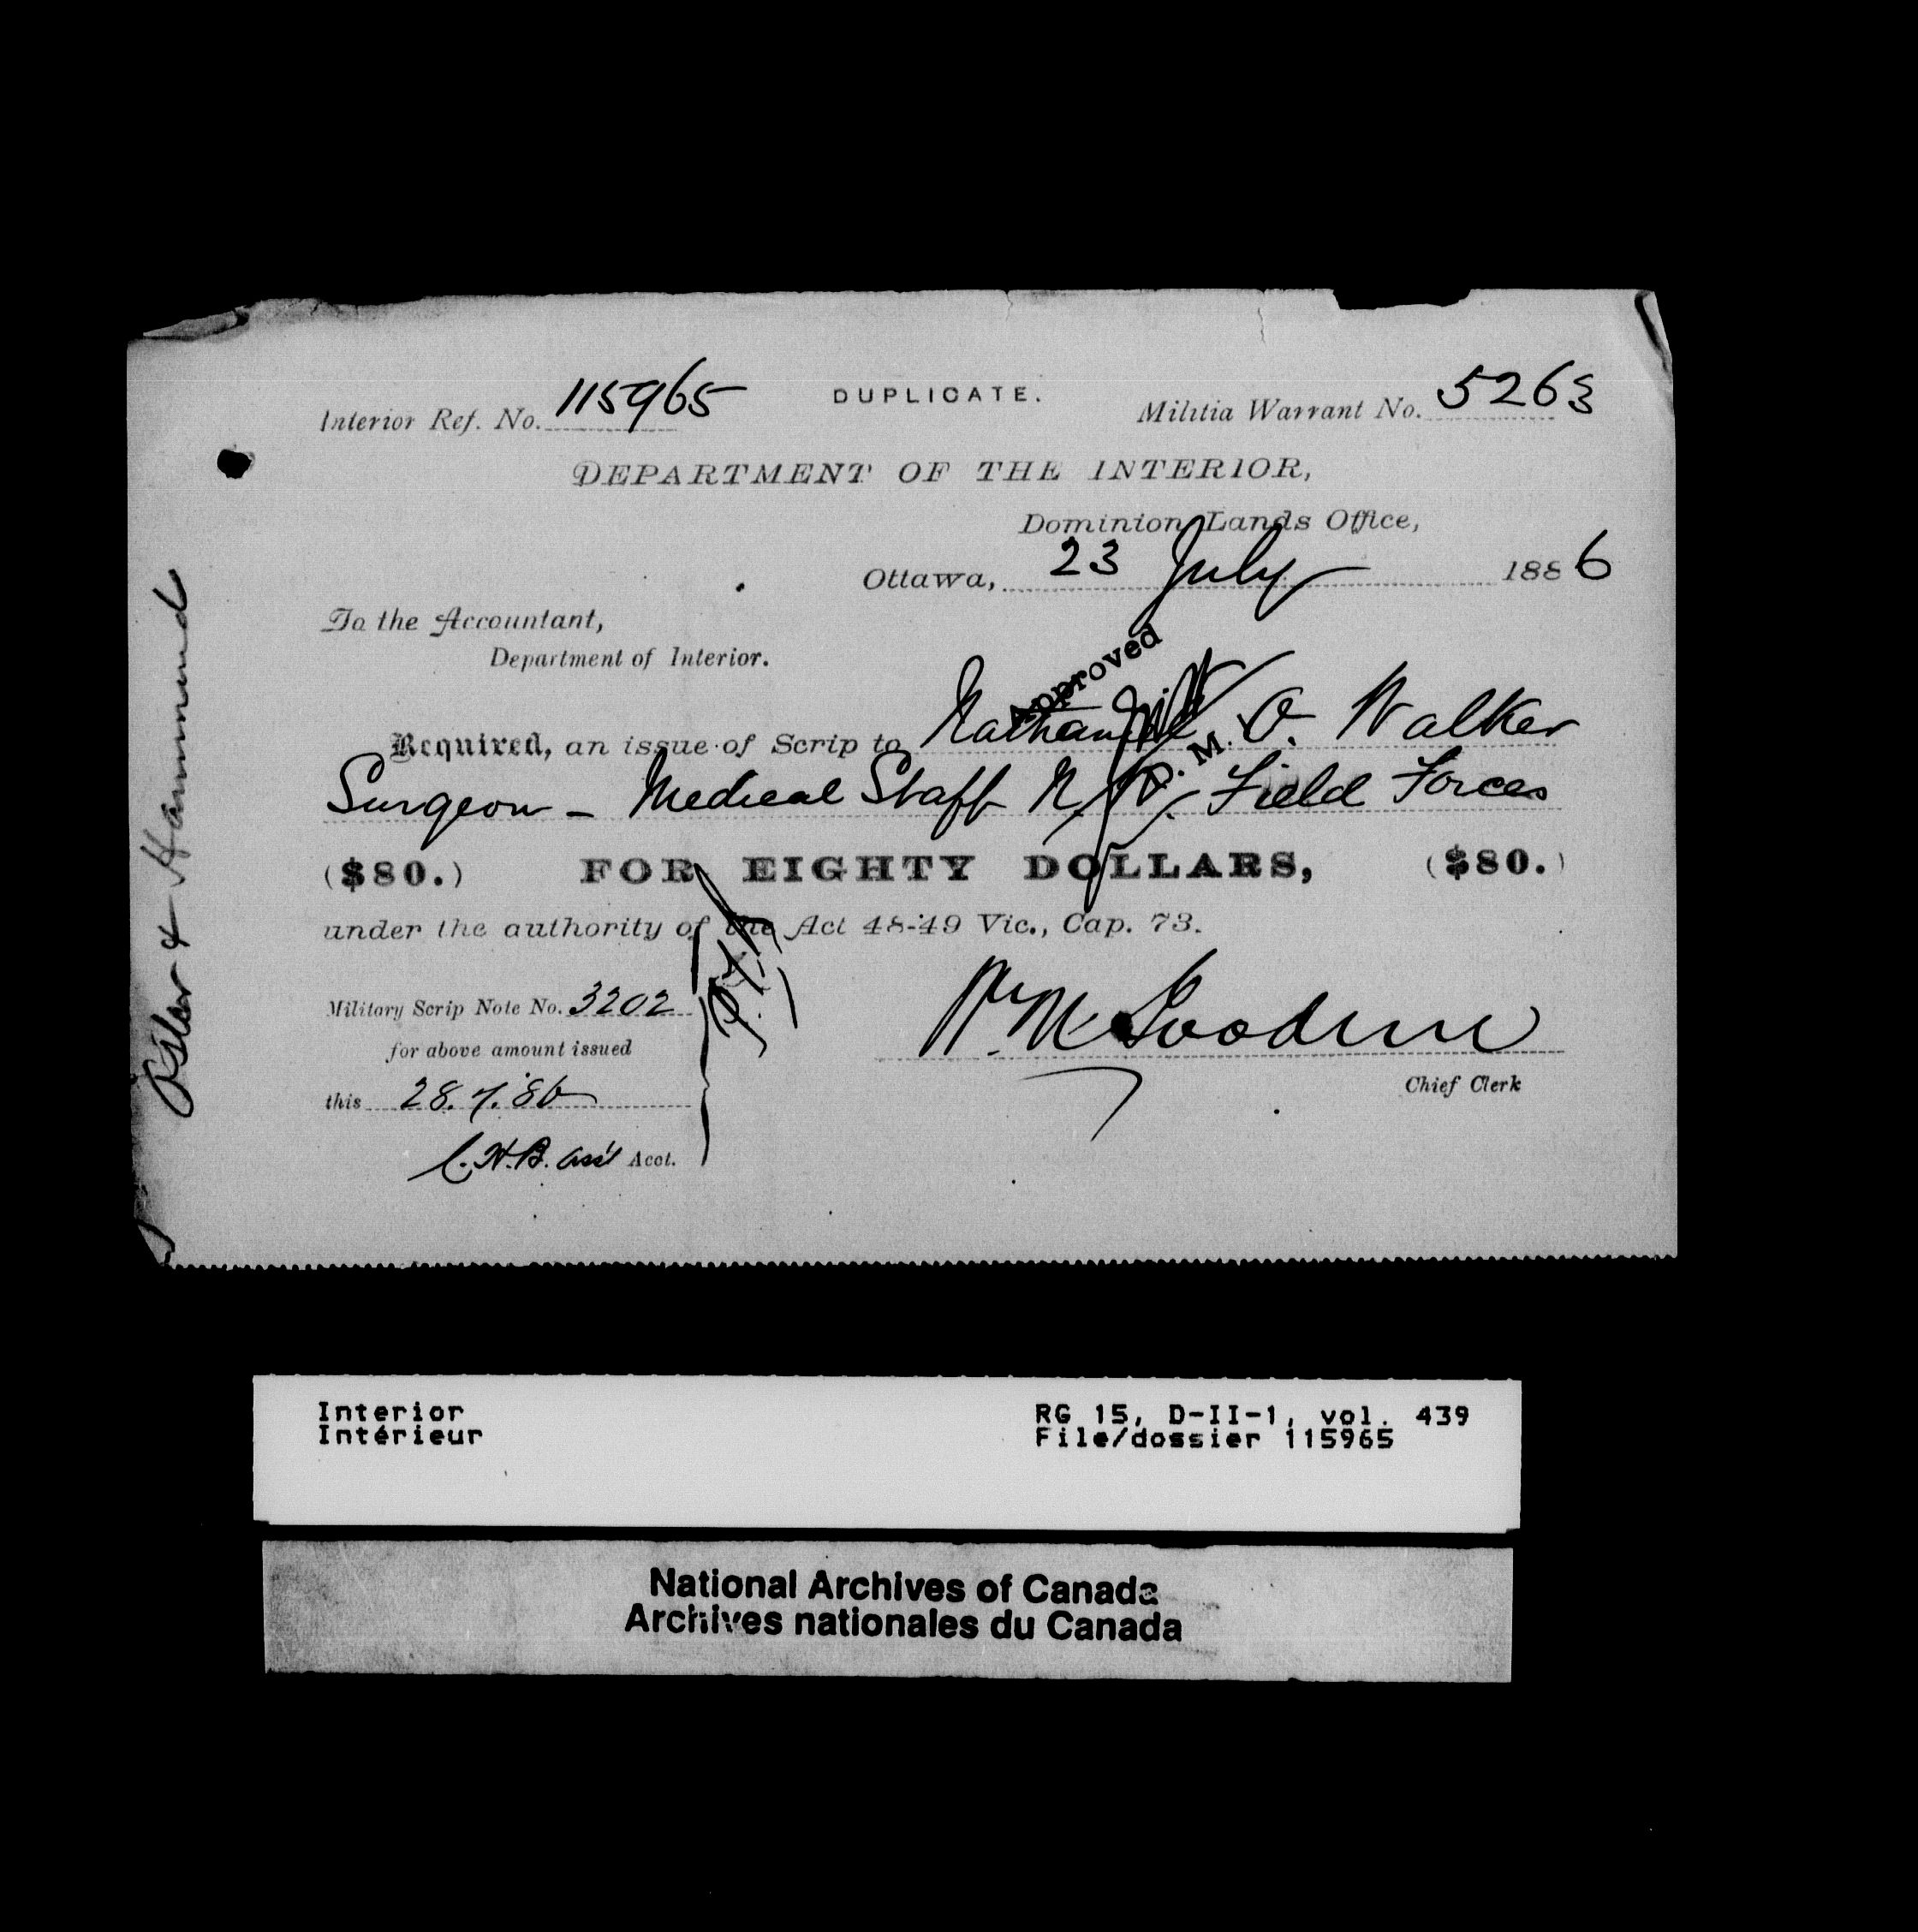 Interior Ref. No. 115965 DUPLICATE. Militia Warrant No. 5263
DEPARTMENT OF THE INTERIOR,
Dominion Lands Office,
Ottawa, 23 July 1886
To the Accountant,
Department of Interior.
Approved
Required, an issue of Scrip to Nathaniel O. Walker
D. M.
Surgeon - Medical Staff N. W. Field Forces
($80.) FOR EIGHTY DOLLARS, ($80.)
under the authority of the Act 48-49 Vic., Cap. 73.
Military Scrip Note No. 3202
for above amount issued
this 28.7.86
C.H.B. Ass't Acct.
Wm M Goodeve
Chief Clerk
Osler & Hammond
Interior
Intérieur
RG 15, D-II-1, vol. 439
File/dossier 115965
National Archives of Canada
Archives nationales du Canada